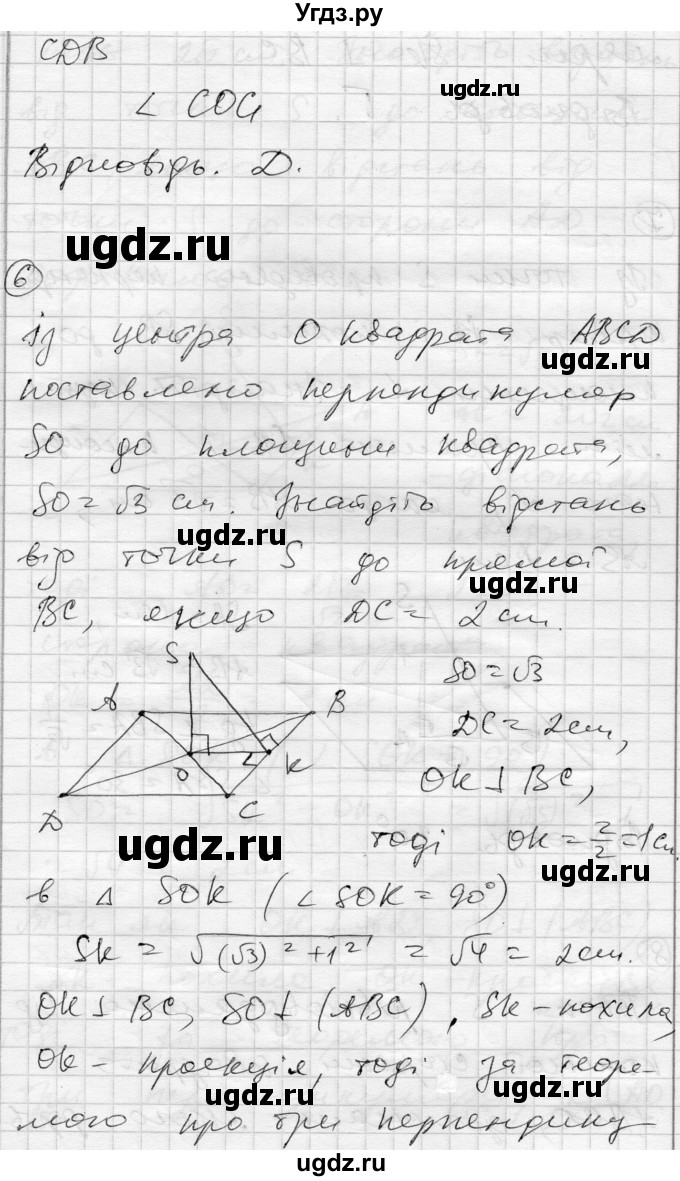 Угдз.ру
CDB
∠ COC₁
Відповідь. D.
ugdz.ru
ugdz.ru
6
Із центра О квадрата ABCD
ugdz.ru
поставлено перпендикуляр
SO до площини квадрата,
SO = √3 см. Знайдіть відстань
ugdz.ru
від точки S до прямої
BC, якщо DC = 2 см.
ugdz.ru
S
SO = √3
A
B
DC = 2 см,
O
K
OK ⊥ BC,
D
C
ugdz.ru
тоді OK = 2/2 = 1 см.
ugdz.ru
в △ SOK (∠ SOK = 90°)
SK = √((√3)² + 1²) = √4 = 2 см.
OK ⊥ BC, SO ⊥ (ABC), SK – похила,
ugdz.ru
OK – проекція, тоді за теоре-
ugdz.ru
ugdz.ru
мою про три перпендику-
ugdz.ru